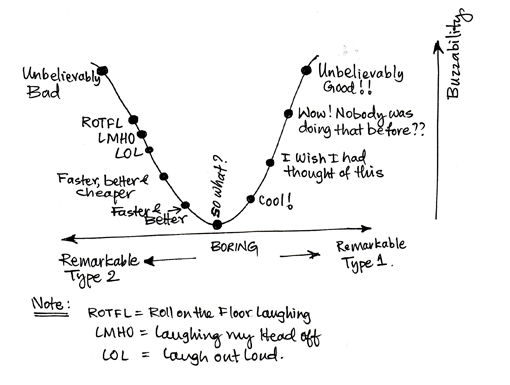 Buzzability
Unbelievably
Bad
Unbelievably
Good!!
ROTFL
LMHO
LOL
Wow! Nobody was
doing that before??
Faster, better &
cheaper
I wish I had
thought of this
Faster &
Better
So what?
Cool!
BORING
Remarkable
Type 2
Remarkable
Type 1.
Note:
ROTFL = Roll on the Floor Laughing
LMHO = Laughing my Head off
LOL = Laugh out Loud.